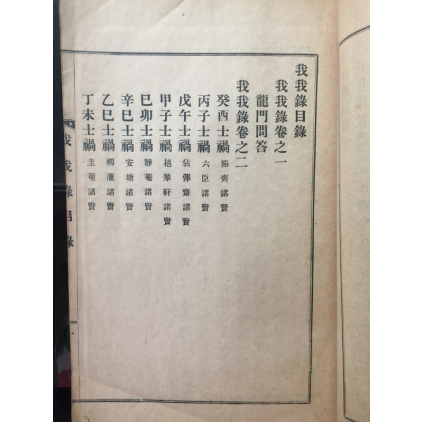 我我錄目錄
我我錄卷之一
龍門問答
我我錄卷之二
癸酉士禍 節齊諸賢
丙子士禍 六臣諸賢
戊午士禍 佔俾齋諸賢
甲子士禍 挹翠軒諸賢
己卯士禍 靜菴諸賢
辛巳士禍 安塘諸賢
乙巳士禍 柳灌諸賢
丁未士禍 圭菴諸賢
我我錄目錄